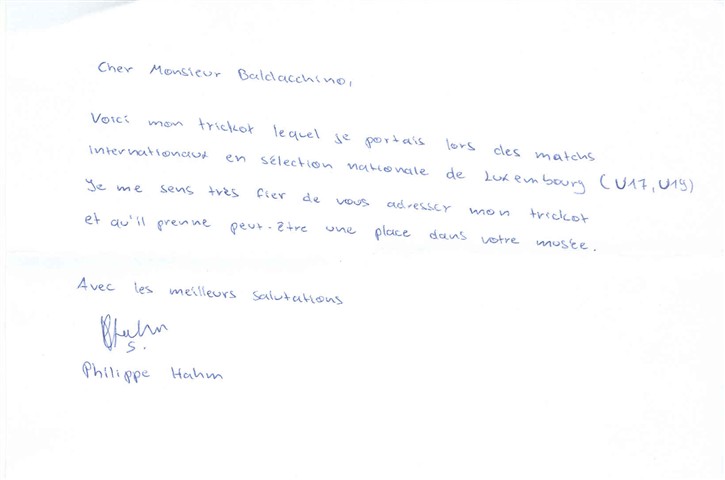 Cher Monsieur Baldacchino,
Voici mon trickot lequel je portais lors des matchs
internationaux en sélection nationale de Luxembourg (U17, U19)
Je me sens très fier de vous adresser mon trickot
et qu'il prenne peut-être une place dans votre musée.
Avec les meilleurs salutations
Philippe Hahm